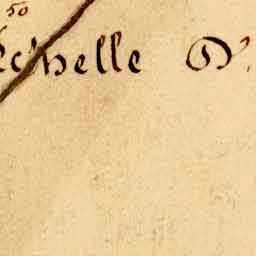 50
Echelle D'